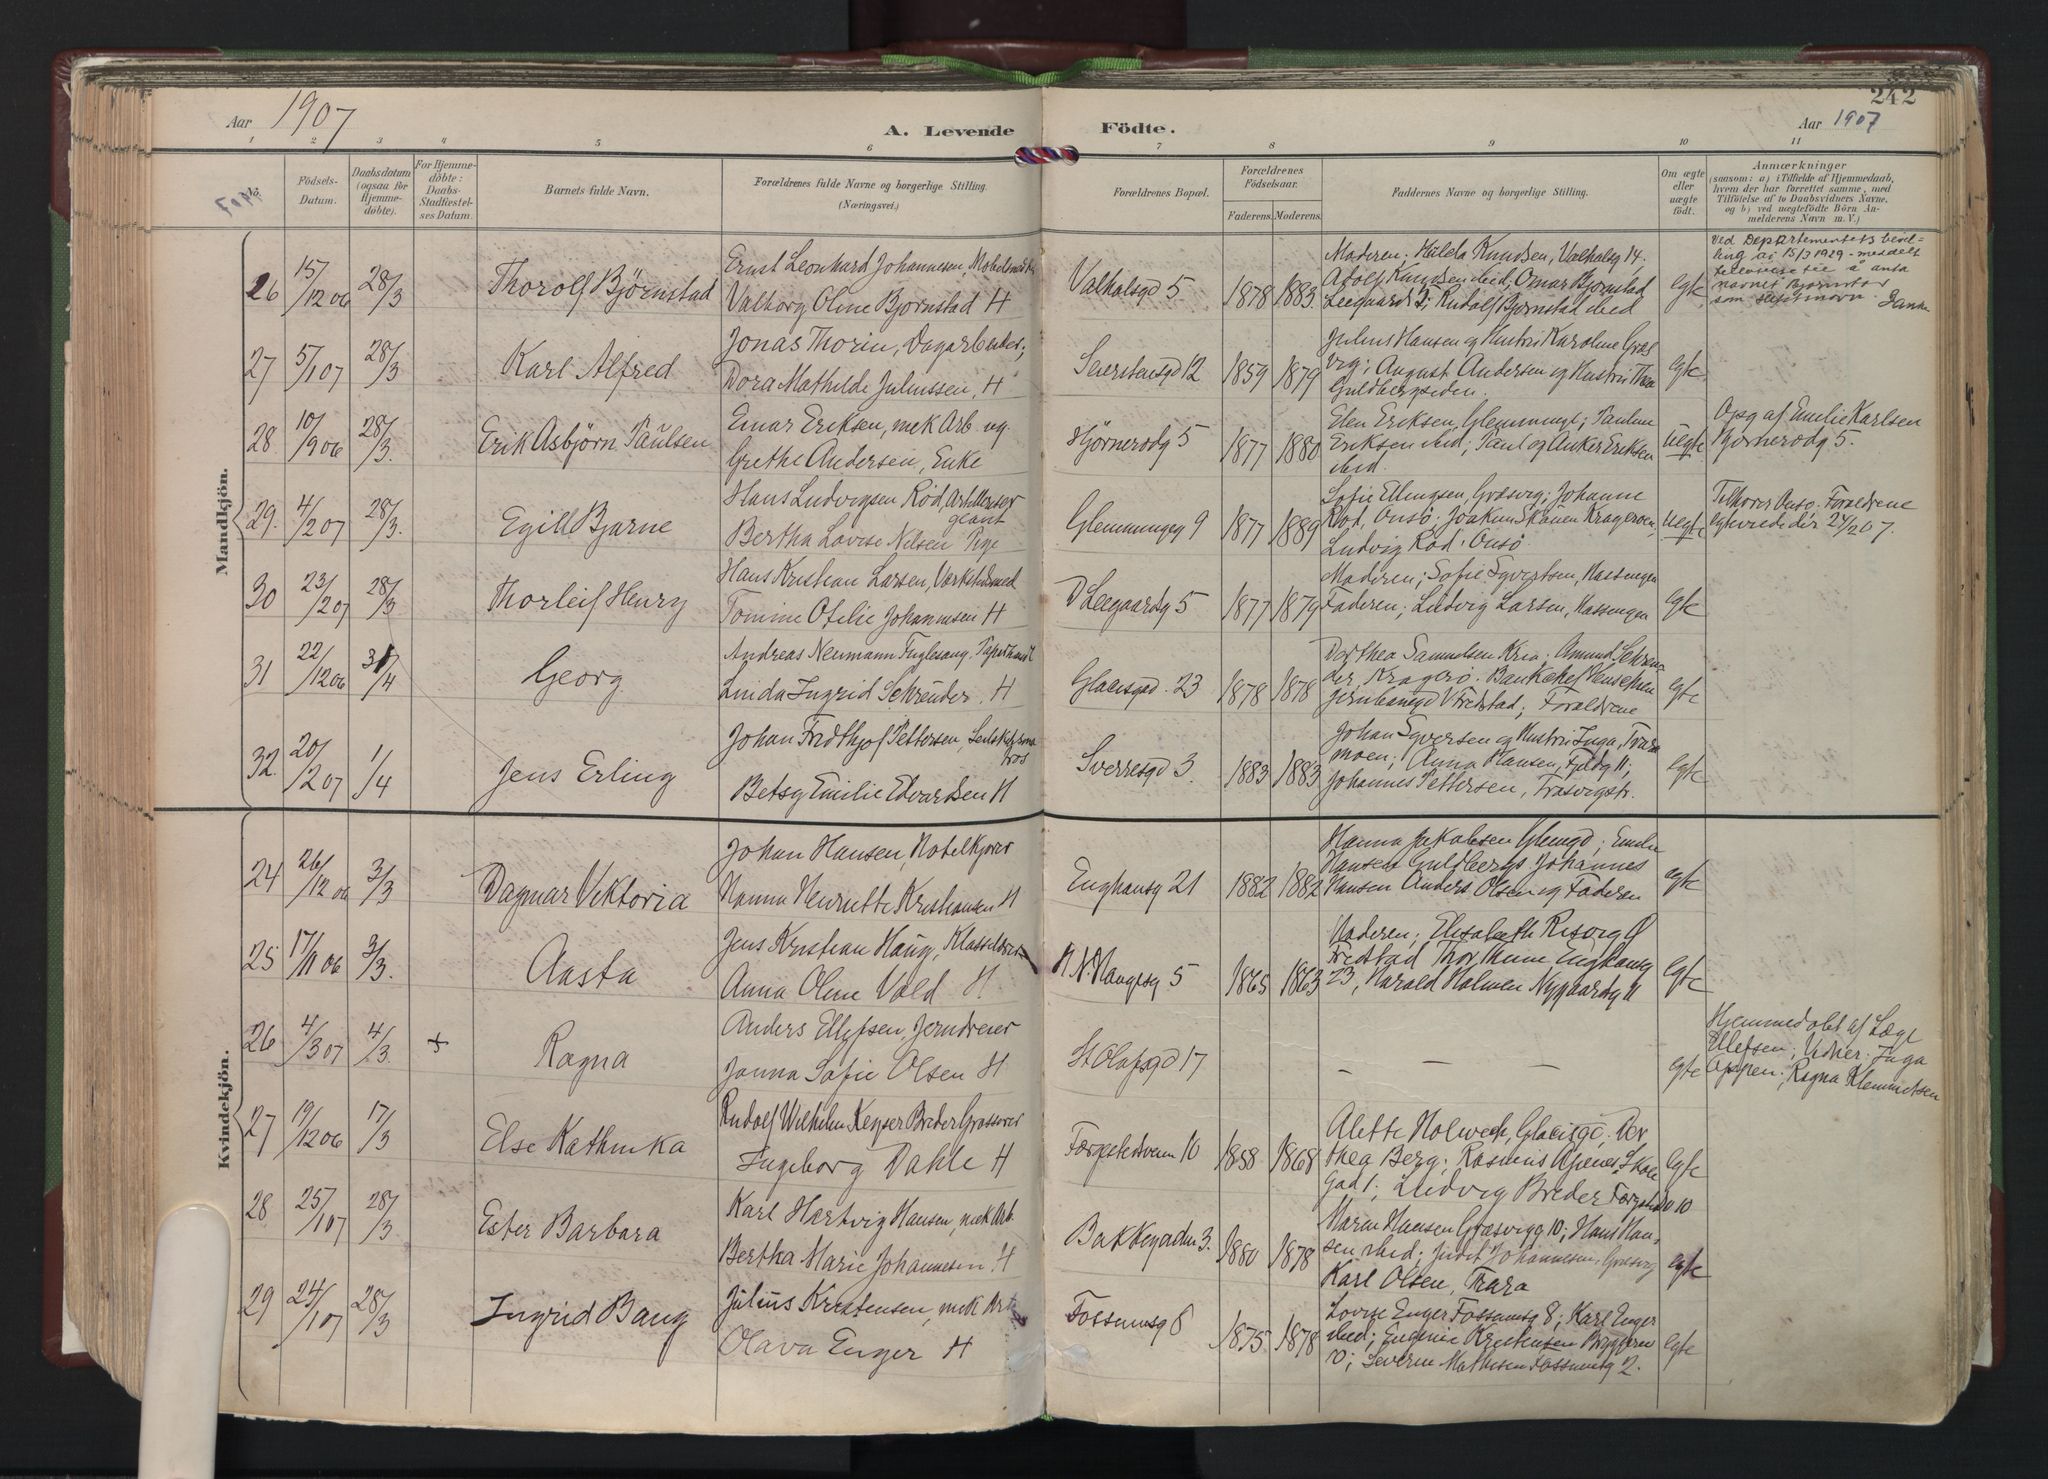 242
Aar 1907
A. Levende Födte.
Aar 1907
1 2 3 4 5 6 7 8 9 10 11
Födsels-Datum.
Daabsdatum (ogsaa för Hjemme-döbte).
For Hjemme-döbte: Daabs-Stadfæstel-ses Datum.
Barnets fulde Navn.
Forældrenes fulde Navne og borgerlige Stilling.
(Næringsvei.)
Forældrenes Bopæl.
Forældrenes Födselsaar.
Faderens. Moderens.
Faddernes Navne og borgerlige Stilling.
Om ægte eller uægte födt.
Anmærkninger
(saasom: a) i Tilfælde af Hjemmedaab,
hvem der har forrettet samme, med
Tilföielse af to Daabsvidners Navne,
og b) ved uægtefödte Börn An-
melderens Navn m. V.)
Mandkjön.
26 15/12 06 28/3 Thorolf Bjørnstad
Ernst Leonhard Johannesen,
Valborg Oline Bjørnstad H
Valhalsgd 5 1878 1883
Moderen; Hilda Knudsen, Valhalsg 14.
Adolf Knudsen ibid, Omar Bjørnstad
Leegaardsg 2; Rudolf Bjørnstad ibid
egte
Ved Departementets bevil-
ling av 15/7 1929 meddelt
tilladelse til å anta
navnet Bjørnstad
som slektsnavn.
27 5/1 07 28/3 Karl Alfred
Jonas Thorin, Dagarbeider;
Dora Mathilde Juliussen, H
Seierstensgd 12 1859 1879
Julius Hansen og Hustru Karoline Græs
vig; August Andersen og Hustru Thea
Guldbergsiden.
egte
28 10/9 06 28/3 Erik Asbjørn Paulsen
Einar Eriksen, mek Arb. ug.
Grethe Andersen, Enke
Hjørnerødg 5 1877 1880
Elen Eriksen, Glemmengt; Pauline
Eriksen ibid, Paul og Anker Eriksen
ibid.
uegte
Opg af Emilie Karlsen
Hjørnerødg 5.
29. 4/2 07 28/3. Egill Bjarne
Hans Ludvigsen Rød, Artilleriser
geant
Bertha Lovise Nilsen Pige
Glemmengeg 9 1877 1889
Sofie Ellingsen, Græsvig; Johanne
Rød, Onsø; Joakim Skauen Kragerøen,
Ludvig Rød. Onsø
uegte
Tilhører Onsø. Forældrene
egteviede der 24/2 07.
30 23/2 07 28/3 Thorleif Henry
Hans Kristian Larsen, Værkstedsmed
Tomine Otilie Johannesen H
D Leegaardsg 5 1877 1879
Moderen; Sofie Syvertsen, Hassengen
Faderen; Ludvig Larsen, Hassengen
egte
31 22/12 06 31/4 Georg
Andreas Neumann Fuglesang. Papirhandl
Linda Ingrid Schrøuder. H
Glacisgd. 23 1878 1878
Dorthea Samuelsen Kria. Amund Schrøu
der, Kragerø. Bankchef Henschien
Jernbanegd V Fredstad; Forældrene
egte
32. 20/2 07 1/4 Jens Erling
Johan Fridthjof Pettersen,
Betsy Emilie Edvardsen H
Sverresgd 3. 1883 1883
Johan Syversen og Hustru Inga, Trara
moen; Anna Hansen, Fjeldg 11;
Johannes Pettersen, Trosvigstr.
egte
Kvindekjön.
24 26/12 06 3/3 Dagmar Viktoria
Johan Hansen, Hotelkjører
Hanna Henriette Kristiansen H
Enghausg 21 1882 1882
Hanna Jakobsen Glengd; Emilie
Hansen Guldbergs. Johannes
Hansen Anders Olsen og Faderen
egte
25 17/11 06 3/3. Aasta
Jens Kristian Haug, Klasselærer
Anna Oline Vold H
H. N. Haugesg 5 1865 1863
Moderen; Elisabeth Risvig Ø
Fredstad Thor Thune Enghausg
23, Harald Holmen Nygaardsg 11
egte
26 4/3 07 4/3. + Ragna
Anders Ellefsen, Jerndreier
Janna Sofie Olsen H
St Olafsgd 17 — — —
egte
Hjemmedøbt af Læge
Ellefsen; Vidner: Inga
Appen; Ragna Klemmetsen
27 19/12 06 17/3 Else Kathinka
Rudolf Wilhelm Keyser Breder Grosserer
Ingeborg Dahle H
Færgestedsveien 10 1858 1868
Alette Holweck, Glacisgd; Dor
thea Berg; Rasmus Apenes Skole
Gad 1; Ludvig Breder Færgestedv 10
egte
28 25/1 07 28/3 Ester Barbara
Karl Hartvig Hansen, mek Arb.
Bertha Marie Johannesen H
Bakkegaden 3. 1880 1878
Maren Hansen Græsvigg 10; Hans Han-
sen ibid; Judit Johannesen, Græsvig
Karl Olsen, Trara
egte
29 24/1 07 28/3 Ingrid Bang
Julius Kristensen, mek Arb
Olava Enger H
Fossumsg 8 1875 1878
Lovise Enger Fossumsg 8; Karl Enger
ibid; Eugenie Kristensen Bryggeriv
10; Severin Mathisen Fossumsg 2.
egte